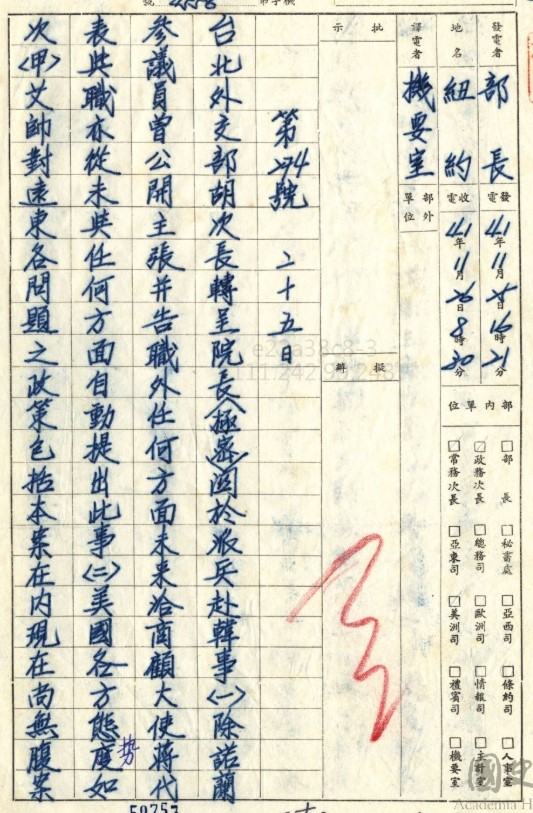 發電者 部長
地名 紐約
譯電者 機要室
發電 41年11月25日16時21分
收電 41年11月26日8時30分
部外單位
部內單位
□部長 □秘書處 □亞西司 □條約司 □人事室
☑政務次長 □總務司 □歐洲司 □情報司 □主計室
□常務次長 □亞東司 ☑美洲司 □禮賓司 □機要室
批示
擬辦
第 號 二十五日
台北外交部胡次長轉呈院長(極密)關於派兵赴韓事(一)除諾蘭
參議員曾公開主張并告職外任何方面未來洽商顧大使蔣代
表與職亦從未與任何方面自動提出此事(二)美國各方態度如
勢
次(甲)艾帥對遠東各問題之政策包括本案在內現在尚無腹案
國史
Academia H